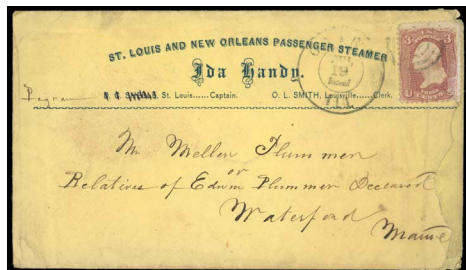 ST. LOUIS AND NEW ORLEANS PASSENGER STEAMER
Ida Handy.
Pegram St. Louis......Captain. O. L. SMITH, Louisville......Clerk.
19
ILL
3 3
Mr Mellen Plummer
or
Relatives of Edwin Plummer Deceased
Waterford
Maine